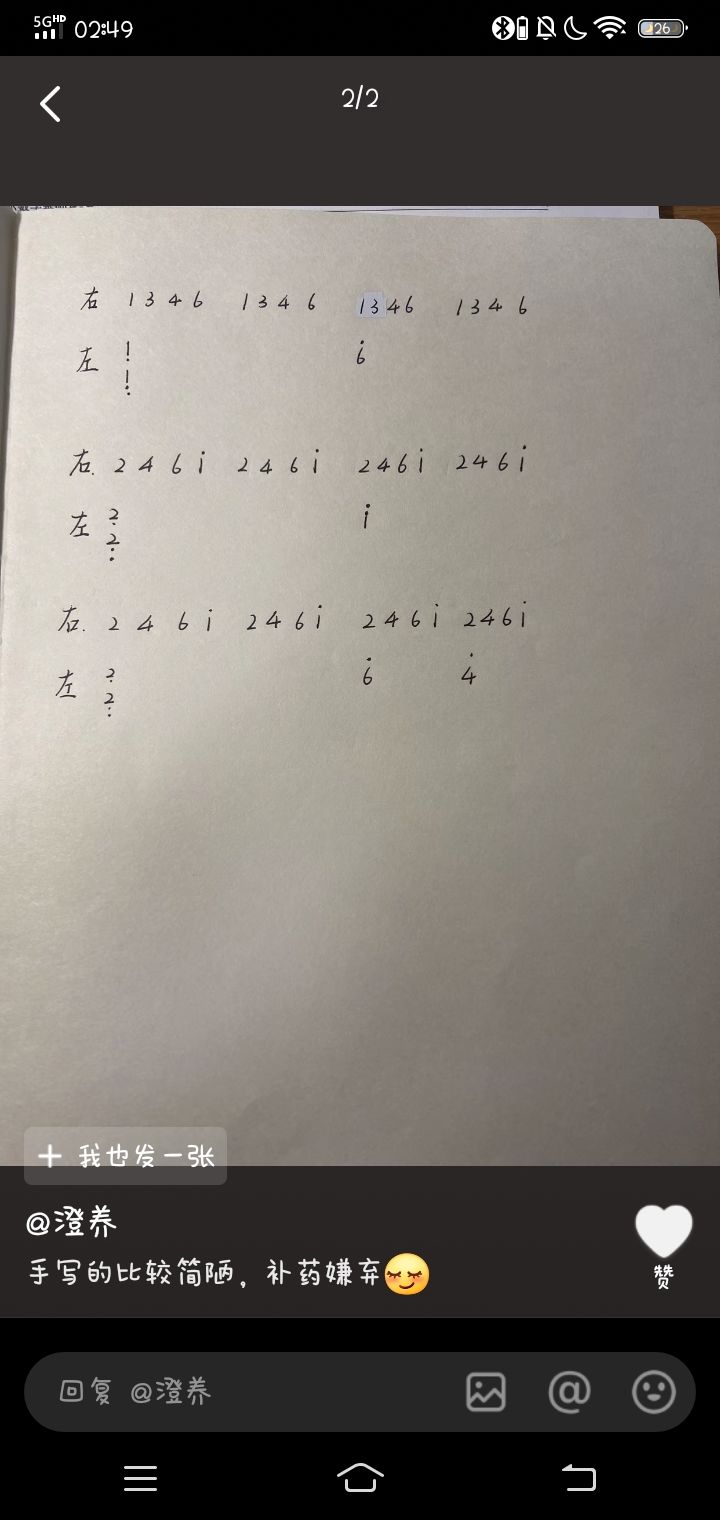 5G HD 02:49 26
2/2
右 1 3 4 6 1 3 4 6 1346 1 3 4 6
左 1̣ 6̇
1̣
右. 2 4 6 i 2 4 6 i 2 4 6 i 2 4 6 i
左 2̣ i̇
2̣
右. 2 4 6 i 2 4 6 i 2 4 6 i 2 4 6 i
左 2̣ 6̇ 4̇
2̣
+ 我也发一张
@澄养
手写的比较简陋，补药嫌弃😌
赞
回复 @澄养